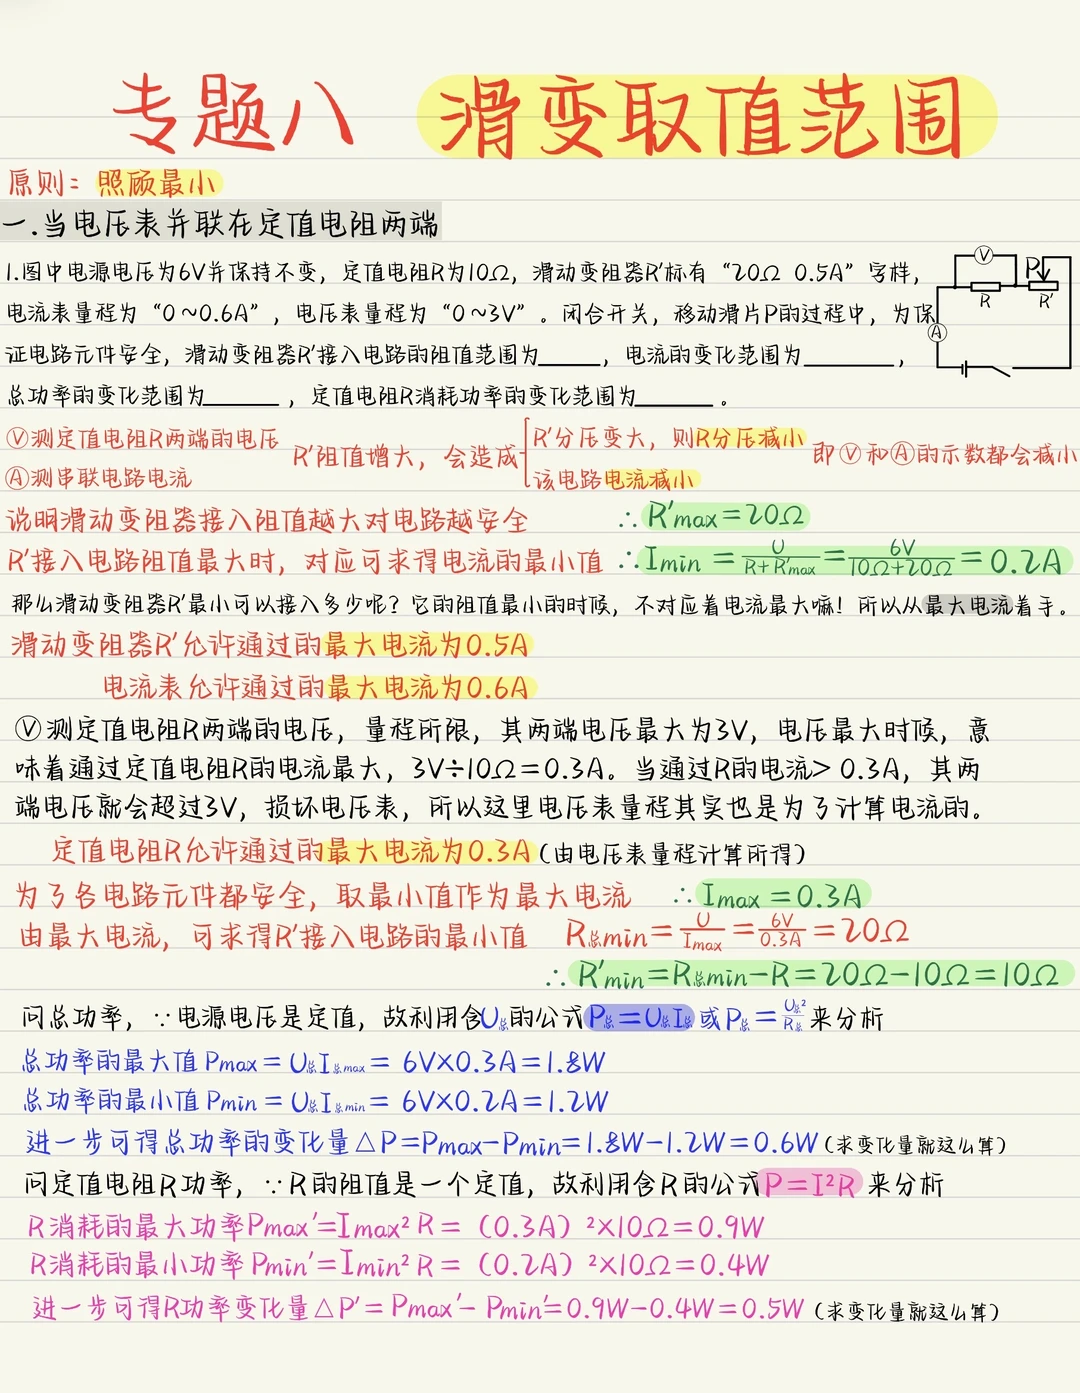 专题八 滑变取值范围
原则：照顾最小
一.当电压表并联在定值电阻两端
1.图中电源电压为6V并保持不变，定值电阻R为10Ω，滑动变阻器R′标有“20Ω 0.5A”字样，
电流表量程为“0～0.6A”，电压表量程为“0～3V”。闭合开关，移动滑片P的过程中，为保
证电路元件安全，滑动变阻器R′接入电路的阻值范围为_____，电流的变化范围为_______，
总功率的变化范围为______，定值电阻R消耗功率的变化范围为______。
V
P
R
R′
A
Ⓥ测定值电阻R两端的电压
Ⓐ测串联电路电流
R′阻值增大，会造成
R′分压变大，则R分压减小
该电路电流减小
即Ⓥ和Ⓐ的示数都会减小
说明滑动变阻器接入阻值越大对电路越安全 ∴R′max＝20Ω
R′接入电路阻值最大时，对应可求得电流的最小值 ∴Imin＝U/(R+R′max)＝6V/(10Ω+20Ω)＝0.2A
那么滑动变阻器R′最小可以接入多少呢？它的阻值最小的时候，不对应着电流最大嘛！所以从最大电流着手。
滑动变阻器R′允许通过的最大电流为0.5A
电流表允许通过的最大电流为0.6A
Ⓥ测定值电阻R两端的电压，量程所限，其两端电压最大为3V，电压最大时候，意
味着通过定值电阻R的电流最大，3V÷10Ω＝0.3A。当通过R的电流＞0.3A，其两
端电压就会超过3V，损坏电压表，所以这里电压表量程其实也是为了计算电流的。
定值电阻R允许通过的最大电流为0.3A（由电压表量程计算所得）
为了各电路元件都安全，取最小值作为最大电流 ∴Imax＝0.3A
由最大电流，可求得R′接入电路的最小值 R总min＝U/Imax＝6V/0.3A＝20Ω
∴R′min＝R总min－R＝20Ω－10Ω＝10Ω
问总功率，∵电源电压是定值，故利用含U总的公式P总＝U总I总或P总＝U总²/R总来分析
总功率的最大值Pmax＝U总I总max＝6V×0.3A＝1.8W
总功率的最小值Pmin＝U总I总min＝6V×0.2A＝1.2W
进一步可得总功率的变化量△P＝Pmax－Pmin＝1.8W－1.2W＝0.6W（求变化量就这么算）
问定值电阻R功率，∵R的阻值是一个定值，故利用含R的公式P＝I²R来分析
R消耗的最大功率Pmax′＝Imax²R＝（0.3A）²×10Ω＝0.9W
R消耗的最小功率Pmin′＝Imin²R＝（0.2A）²×10Ω＝0.4W
进一步可得R功率变化量△P′＝Pmax′－Pmin′＝0.9W－0.4W＝0.5W（求变化量就这么算）